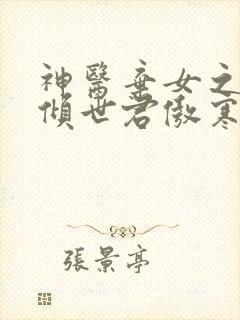 神醫棄女之
傾世君傲寒
張景亭